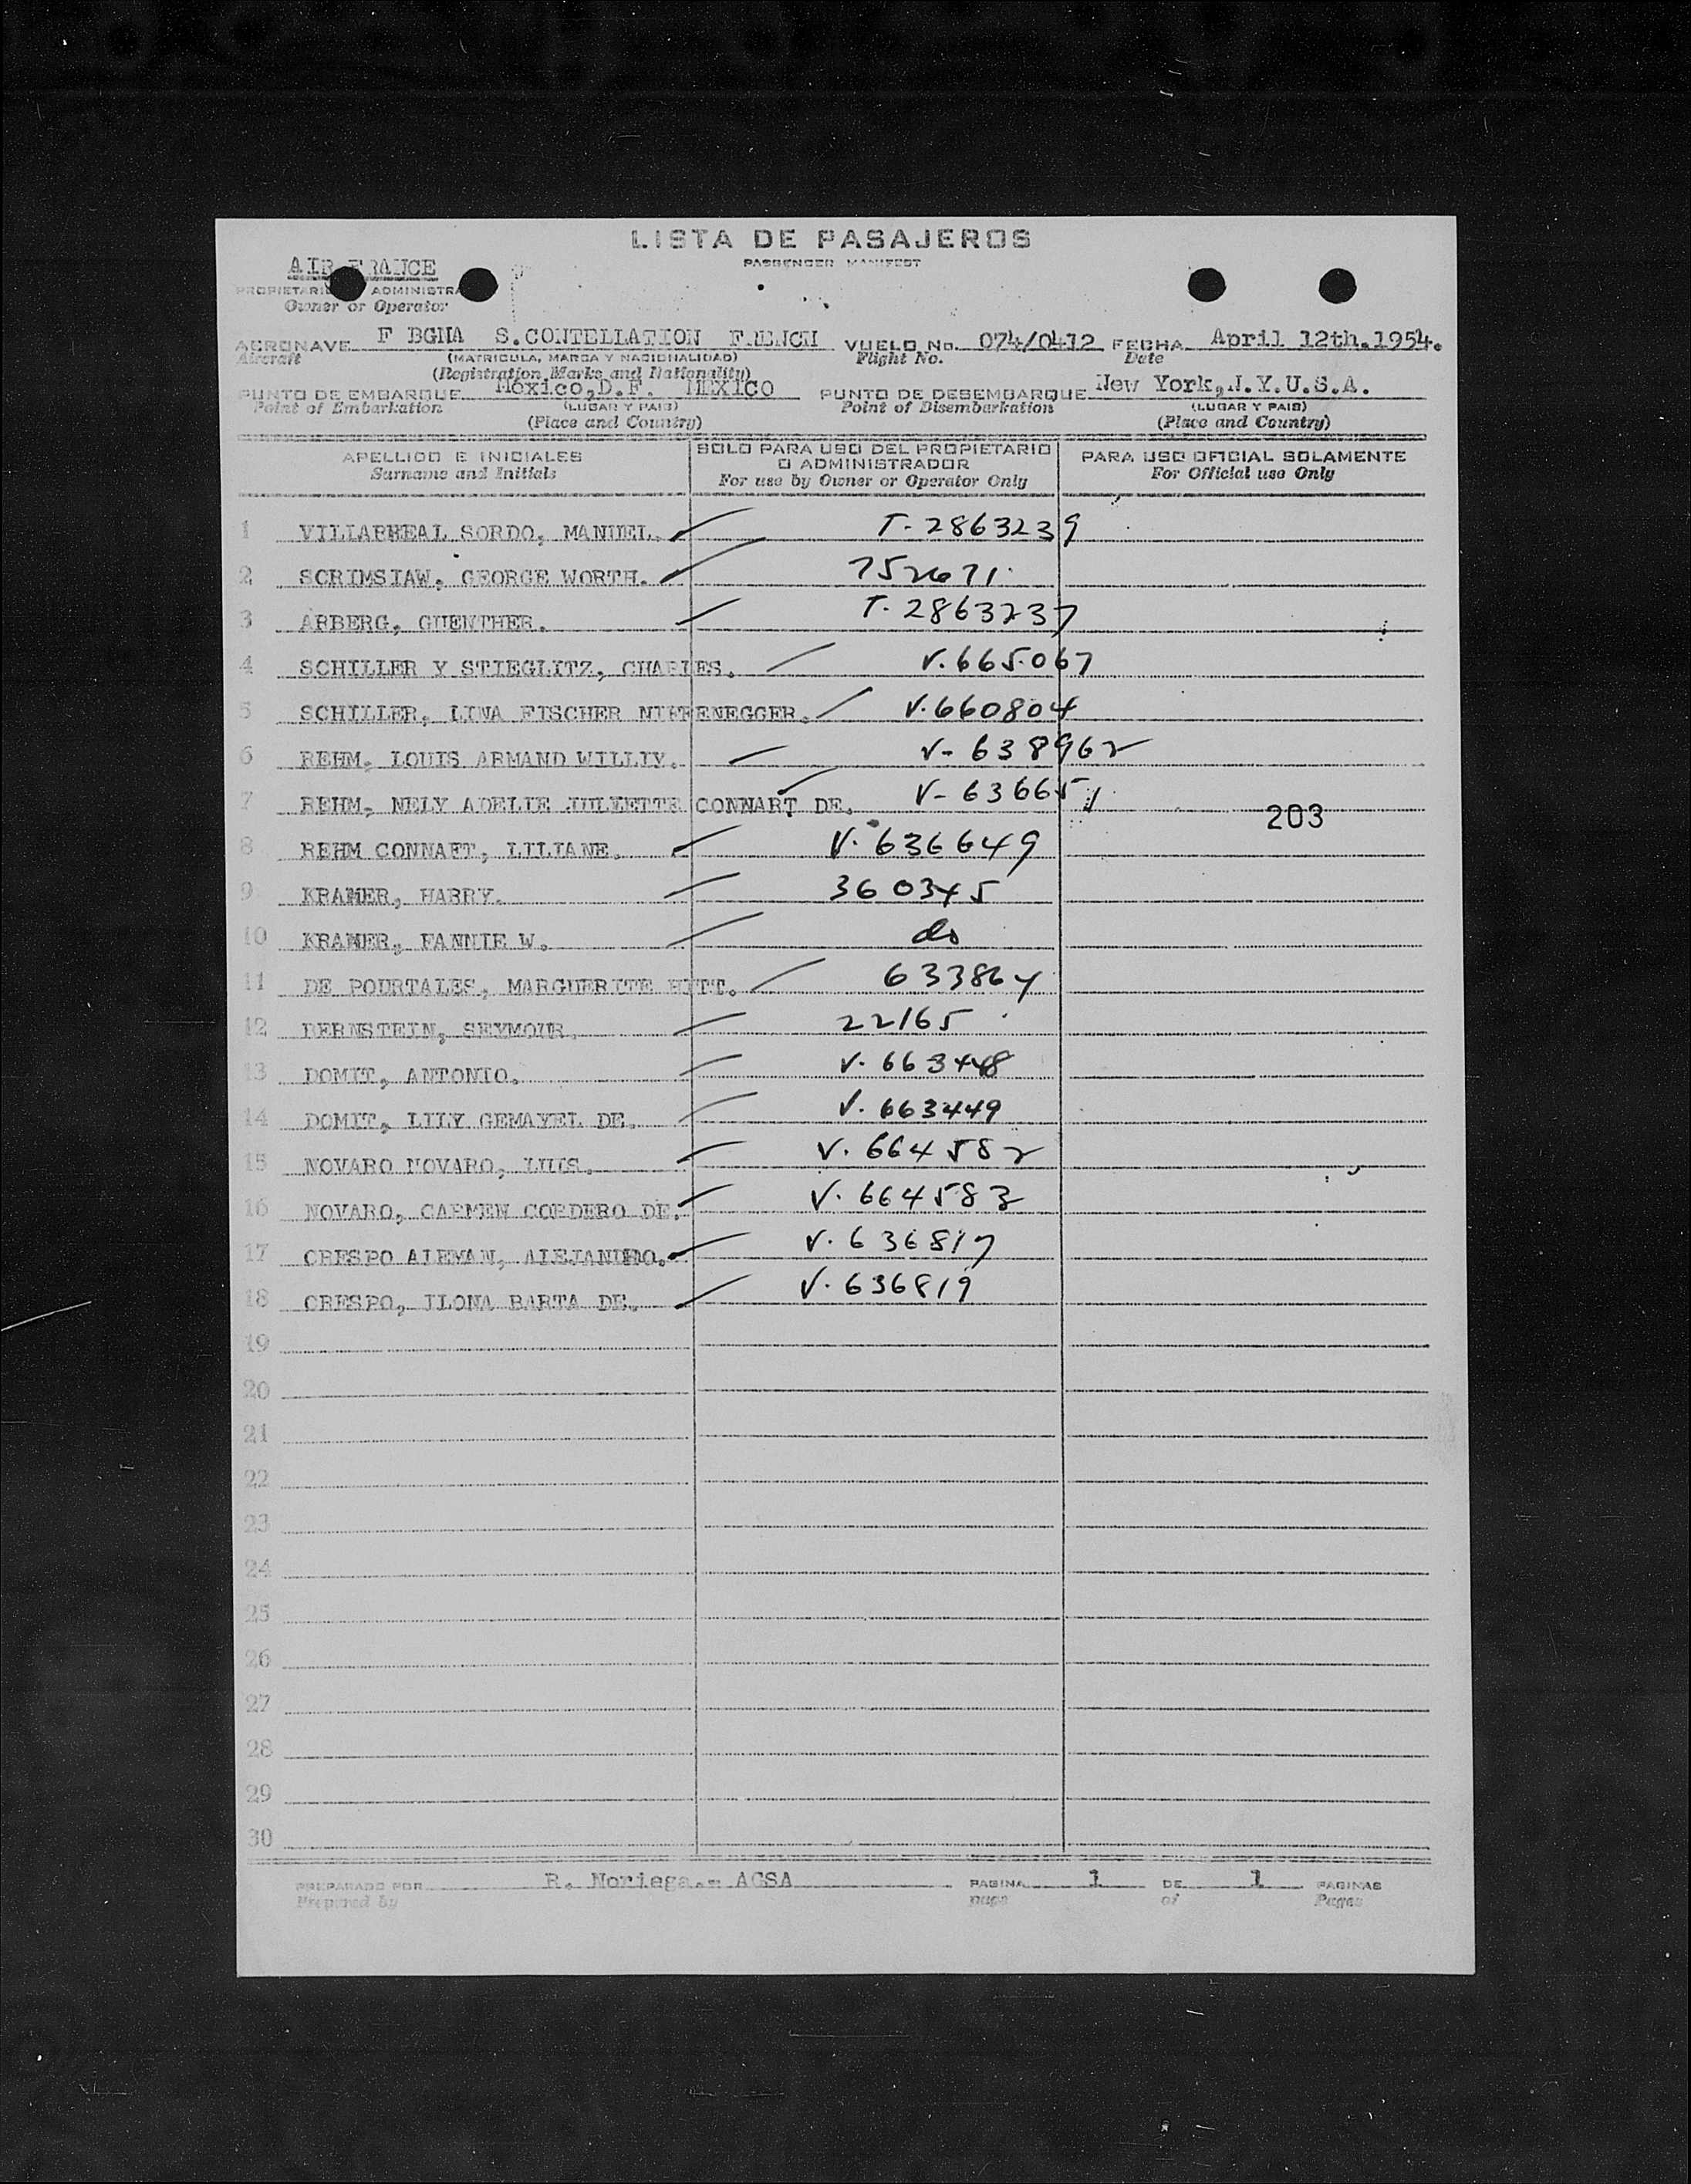 LISTA DE PASAJEROS
PASSENGER MANIFEST
AIR FRANCE
PROPIETARIO ADMINISTRA
Owner or Operator
AERONAVE F BGNA S.CONTELLATION FRENCH VUELO No. 074/0412 FECHA April 12th.1954.
Aircraft (MATRICULA, MARCA Y NACIONALIDAD) Flight No. Date
(Registration Marks and Nationality)
PUNTO DE EMBARQUE México,D.F. MEXICO PUNTO DE DESEMBARQUE New York,N.Y.U.S.A.
Point of Embarkation (LUGAR Y PAIS) Point of Disembarkation (LUGAR Y PAIS)
(Place and Country) (Place and Country)
APELLIDO E INICIALES SOLO PARA USO DEL PROPIETARIO O ADMINISTRADOR PARA USO OFICIAL SOLAMENTE
Surname and Initials For use by Owner or Operator Only For Official use Only
1 VILLARREAL SORDO, MANUEL. T-2863239
2 SCRIMSIAW, GEORGE WORTH. 752671
3 ARBERG, GUENTHER. T-2863237
4 SCHILLER Y STIEGLITZ, CHARLES. V.665067
5 SCHILLER, LINA FISCHER NIFFENEGGER. V.660804
6 REHM, LOUIS ARMAND WILLIY. V-638962
7 REHM, NELY ADELIE JULIETTE CONNART DE. V-636651
203
8 REHM CONNART, LILIANE. V.636649
9 KRAMER, HARRY. 360345
10 KRAMER, FANNIE W. do
11 DE POURTALES, MARGUERITE HITT. 633864
12 BERNSTEIN, SEYMOUR. 22165
13 DOMIT, ANTONIO. V.663448
14 DOMIT, LILY GEMAYEL DE. V.663449
15 NOVARO NOVARO, LUIS. V.664582
16 NOVARO, CARMEN CORDERO DE. V.664583
17 CRESPO ALEMAN, ALEJANDRO. V.636817
18 CRESPO, ILONA BARTA DE. V.636819
19
20
21
22
23
24
25
26
27
28
29
30
PREPARADO POR R. Noriega.- ACSA PAGINA 1 DE 1 PAGINAS
Prepared by page of Pages